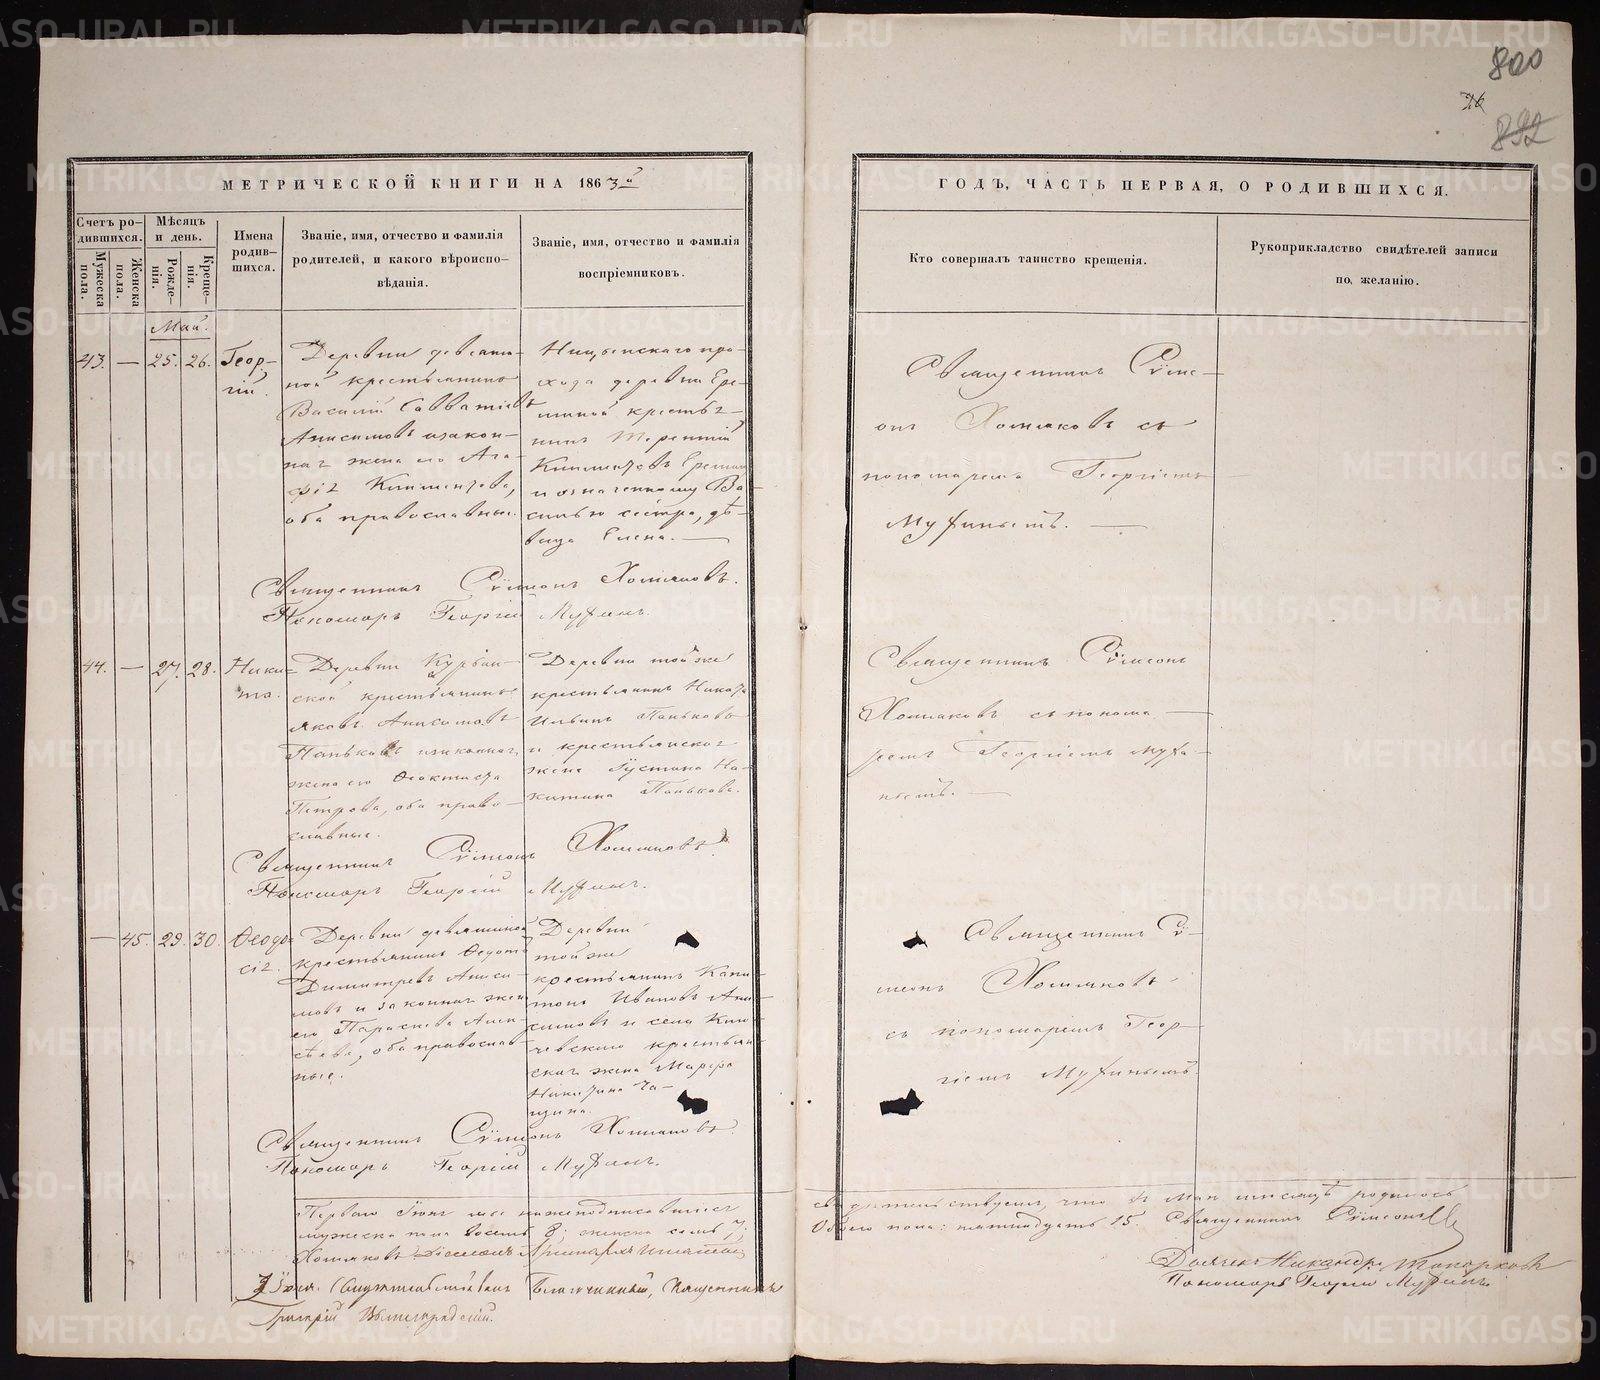 800
76
892
МЕТРИЧЕСКОЙ КНИГИ НА 1863й
ГОДЪ, ЧАСТЬ ПЕРВАЯ, О РОДИВШИХСЯ.
Счетъ ро-
дившихся.
Мѣсяцъ
и день.
Мужеска
пола.
Женска
пола.
Рожде-
нія.
Креще-
нія.
Имена
родив-
шихся.
Званіе, имя, отчество и фамилія
родителей, и какого вѣроиспо-
вѣданія.
Званіе, имя, отчество и фамилія
воспріемниковъ.
Кто совершалъ таинство крещенія.
Рукоприкладство свидѣтелей записи
по желанію.
Май.
43. — 25. 26. Геор-
гій.
Деревни девяши-
ной крестьянинъ
Василій Савватіевъ
Анисимовъ и закон-
ная жена его Ага-
фія Климентова,
оба православные.
Ницынскаго при-
хода деревни Ере-
миной кресть-
нинъ Терентій
Климентовъ Еремин
и означенному Ва-
силью сестра, дѣ-
вица Елена. —
Священникъ Сѵме-
онъ Хомяковъ съ
пономаремъ Георгіемъ
Мухинымъ. —
Священникъ Сѵмеонъ Хомяковъ.
Пономарь Георгій Мухинъ.
44. — 27. 28. Ники-
та.
Деревни Курбан-
ской крестьянинъ
Яковъ Анисимовъ
Паньковъ и законная
жена его Ѳеоктиста
Петрова, оба право-
славные.
Деревни той же
крестьянинъ Никита
Ильинъ Паньковъ
и крестьянская
жена Іустина Ни-
китина Панькова.
Священникъ Сѵмеонъ
Хомяковъ съ понома-
ремъ Георгіемъ Мухи-
нымъ. —
Священникъ Сѵмеонъ Хомяковъ.
Пономарь Георгій Мухинъ.
— 45. 29. 30. Ѳеодо-
сія.
Деревни девяшиной
крестьянинъ Ѳедотъ
Димитріевъ Аниси-
мовъ и законная жена
его Параскева Алек-
сѣева, оба православ-
ные.
Деревни
той же
крестьянинъ Капи-
тонъ Ивановъ Ани-
симовъ и села Клю-
чевскаго крестьян-
ская жена Марфа
Никитина Ча-
щина.
Священникъ Сѵ-
меонъ Хомяковъ
съ пономаремъ Геор-
гіемъ Мухинымъ.
Священникъ Сѵмеонъ Хомяковъ.
Пономарь Георгій Мухинъ.
Перваго Іюня мы нижеподписавшіеся
свидѣтельствуемъ, что въ Маѣ мѣсяцѣ родилось
мужеска пола восемь 8, женска семь 7,
Обоего пола: пятнадцать 15. Священникъ Сѵмеонъ
Хомяковъ
Дьячекъ Никандръ Топорковъ
Пономарь Георгій Мухинъ.
Іюня. Свидѣтельствовалъ Благочинный, Священникъ
Григорій